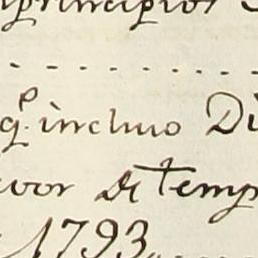 principios
q.º incluio Di
vor de temp
1793